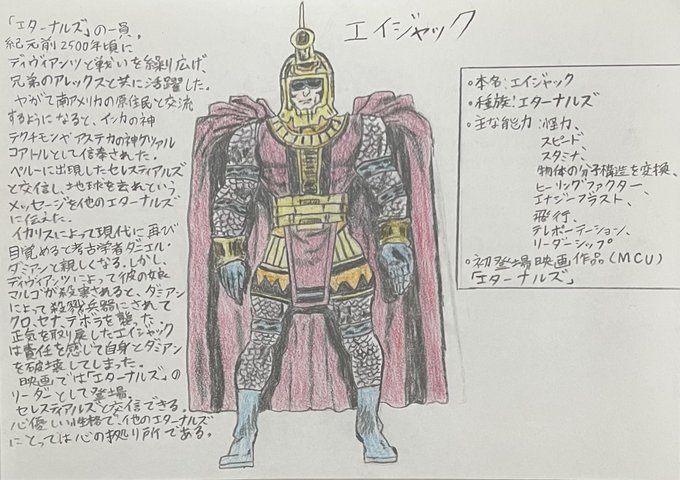 エイジャック
「エターナルズ」の一員。
紀元前2500年頃に
ディヴィアンツと戦いを繰り広げ、
兄弟のアレックスと共に活躍した。
やがて南アメリカの原住民と交流
するようになると、インカの神
テクチモンヤアステカの神ケツァル
コアトルとして信奉された。
ペルーに出現したセレスティアルズ
と交信し、地球を去れという
メッセージを他のエターナルズ
に伝えた。
イカリスによって現代に再び
目覚めると考古学者ダニエル・
ダミアンと親しくなる。しかし、
ディヴィアンツによって彼の娘
マルゴが殺害されると、ダミアン
によって殺戮兵器にされて
クロ、セナ、デボラを襲った。
正気を取り戻したエイジャック
は責任を感じて自身とダミアン
を破壊してしまった。
映画では「エターナルズ」の
リーダーとして登場。
セレスティアルズと交信できる。
心優しい性格で、他のエターナルズ
にとっては心の拠り所である。
・本名:エイジャック
・種族:エターナルズ
・主な能力:怪力、
スピード、
スタミナ、
物体の分子構造を変換、
ヒーリングファクター、
エナジーブラスト、
飛行、
テレポーテーション、
リーダーシップ
・初登場映画作品(MCU)
「エターナルズ」